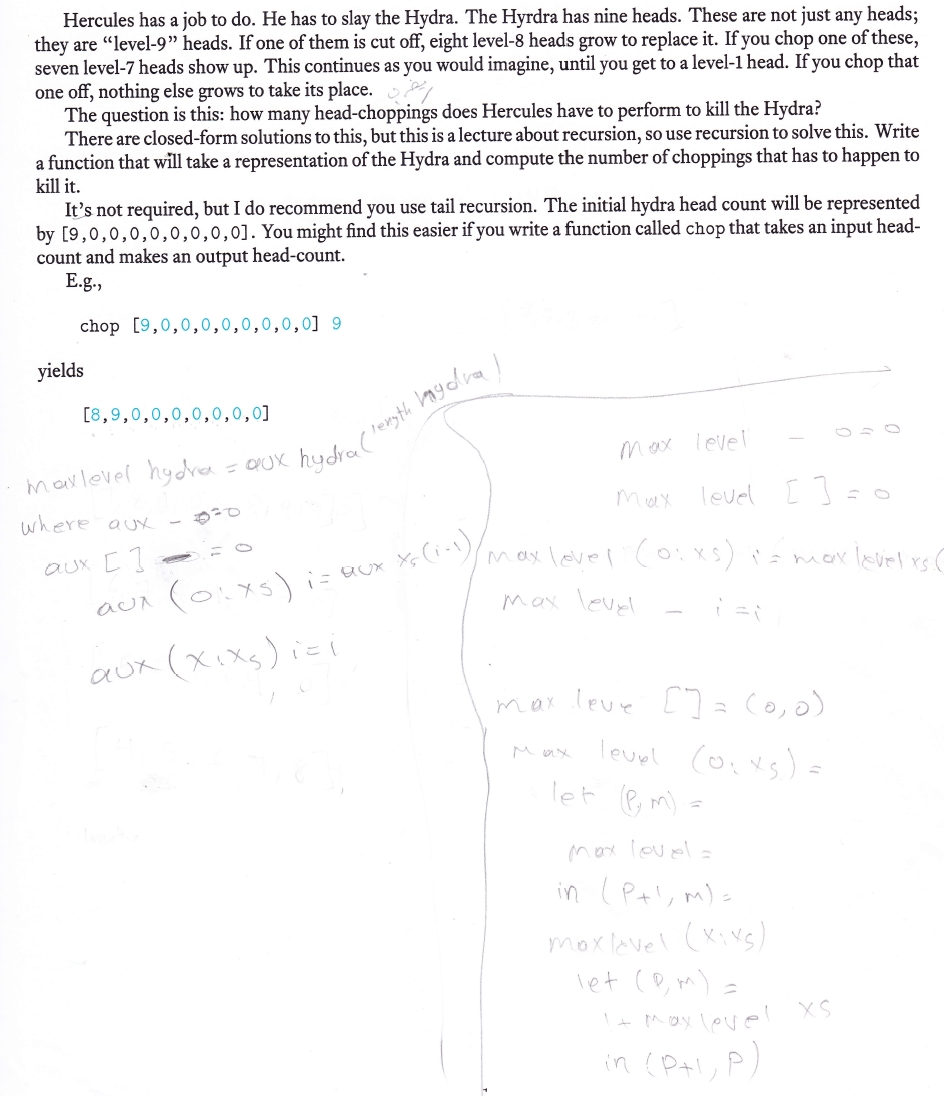 Hercules has a job to do. He has to slay the Hydra. The Hyrdra has nine heads. These are not just any heads;
they are “level-9” heads. If one of them is cut off, eight level-8 heads grow to replace it. If you chop one of these,
seven level-7 heads show up. This continues as you would imagine, until you get to a level-1 head. If you chop that
one off, nothing else grows to take its place.
The question is this: how many head-choppings does Hercules have to perform to kill the Hydra?
There are closed-form solutions to this, but this is a lecture about recursion, so use recursion to solve this. Write
a function that will take a representation of the Hydra and compute the number of choppings that has to happen to
kill it.
It’s not required, but I do recommend you use tail recursion. The initial hydra head count will be represented
by [9,0,0,0,0,0,0,0,0]. You might find this easier if you write a function called chop that takes an input head-
count and makes an output head-count.
E.g.,
chop [9,0,0,0,0,0,0,0,0] 9
yields
[8,9,0,0,0,0,0,0,0]
maxlevel hydra = aux hydra (length hydra)
where aux _ 0=0
aux [] _ = 0
aux (0:xs) i = aux xs (i-1)
aux (x:xs) i=i
max level _ 0=0
max level [] = 0
maxlevel (0:xs) i = max level xs (
max level _ i=i
max leve [] = (0,0)
max level (0:xs) =
let (P,m) =
max level =
in (P+1, m) =
maxlevel (x:xs)
let (P,m) =
1+ maxlevel xs
in (P+1, P)